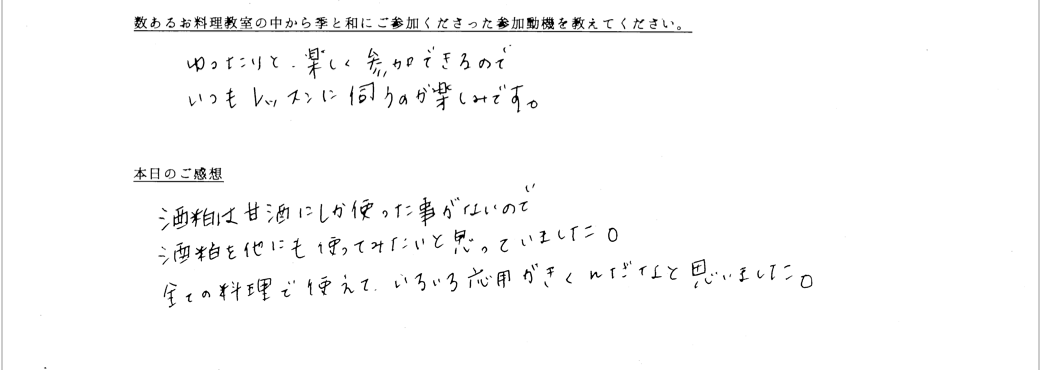 数あるお料理教室の中から季と和にご参加くださった参加動機を教えてください。
ゆったりと、楽しく参加できるので
いつもレッスンに伺うのが楽しみです。
本日のご感想
酒粕は甘酒にしか使った事がないので
酒粕を他にも使ってみたいと思っていました。
全ての料理で使えて、いろいろ応用がきくんだなと思いました。